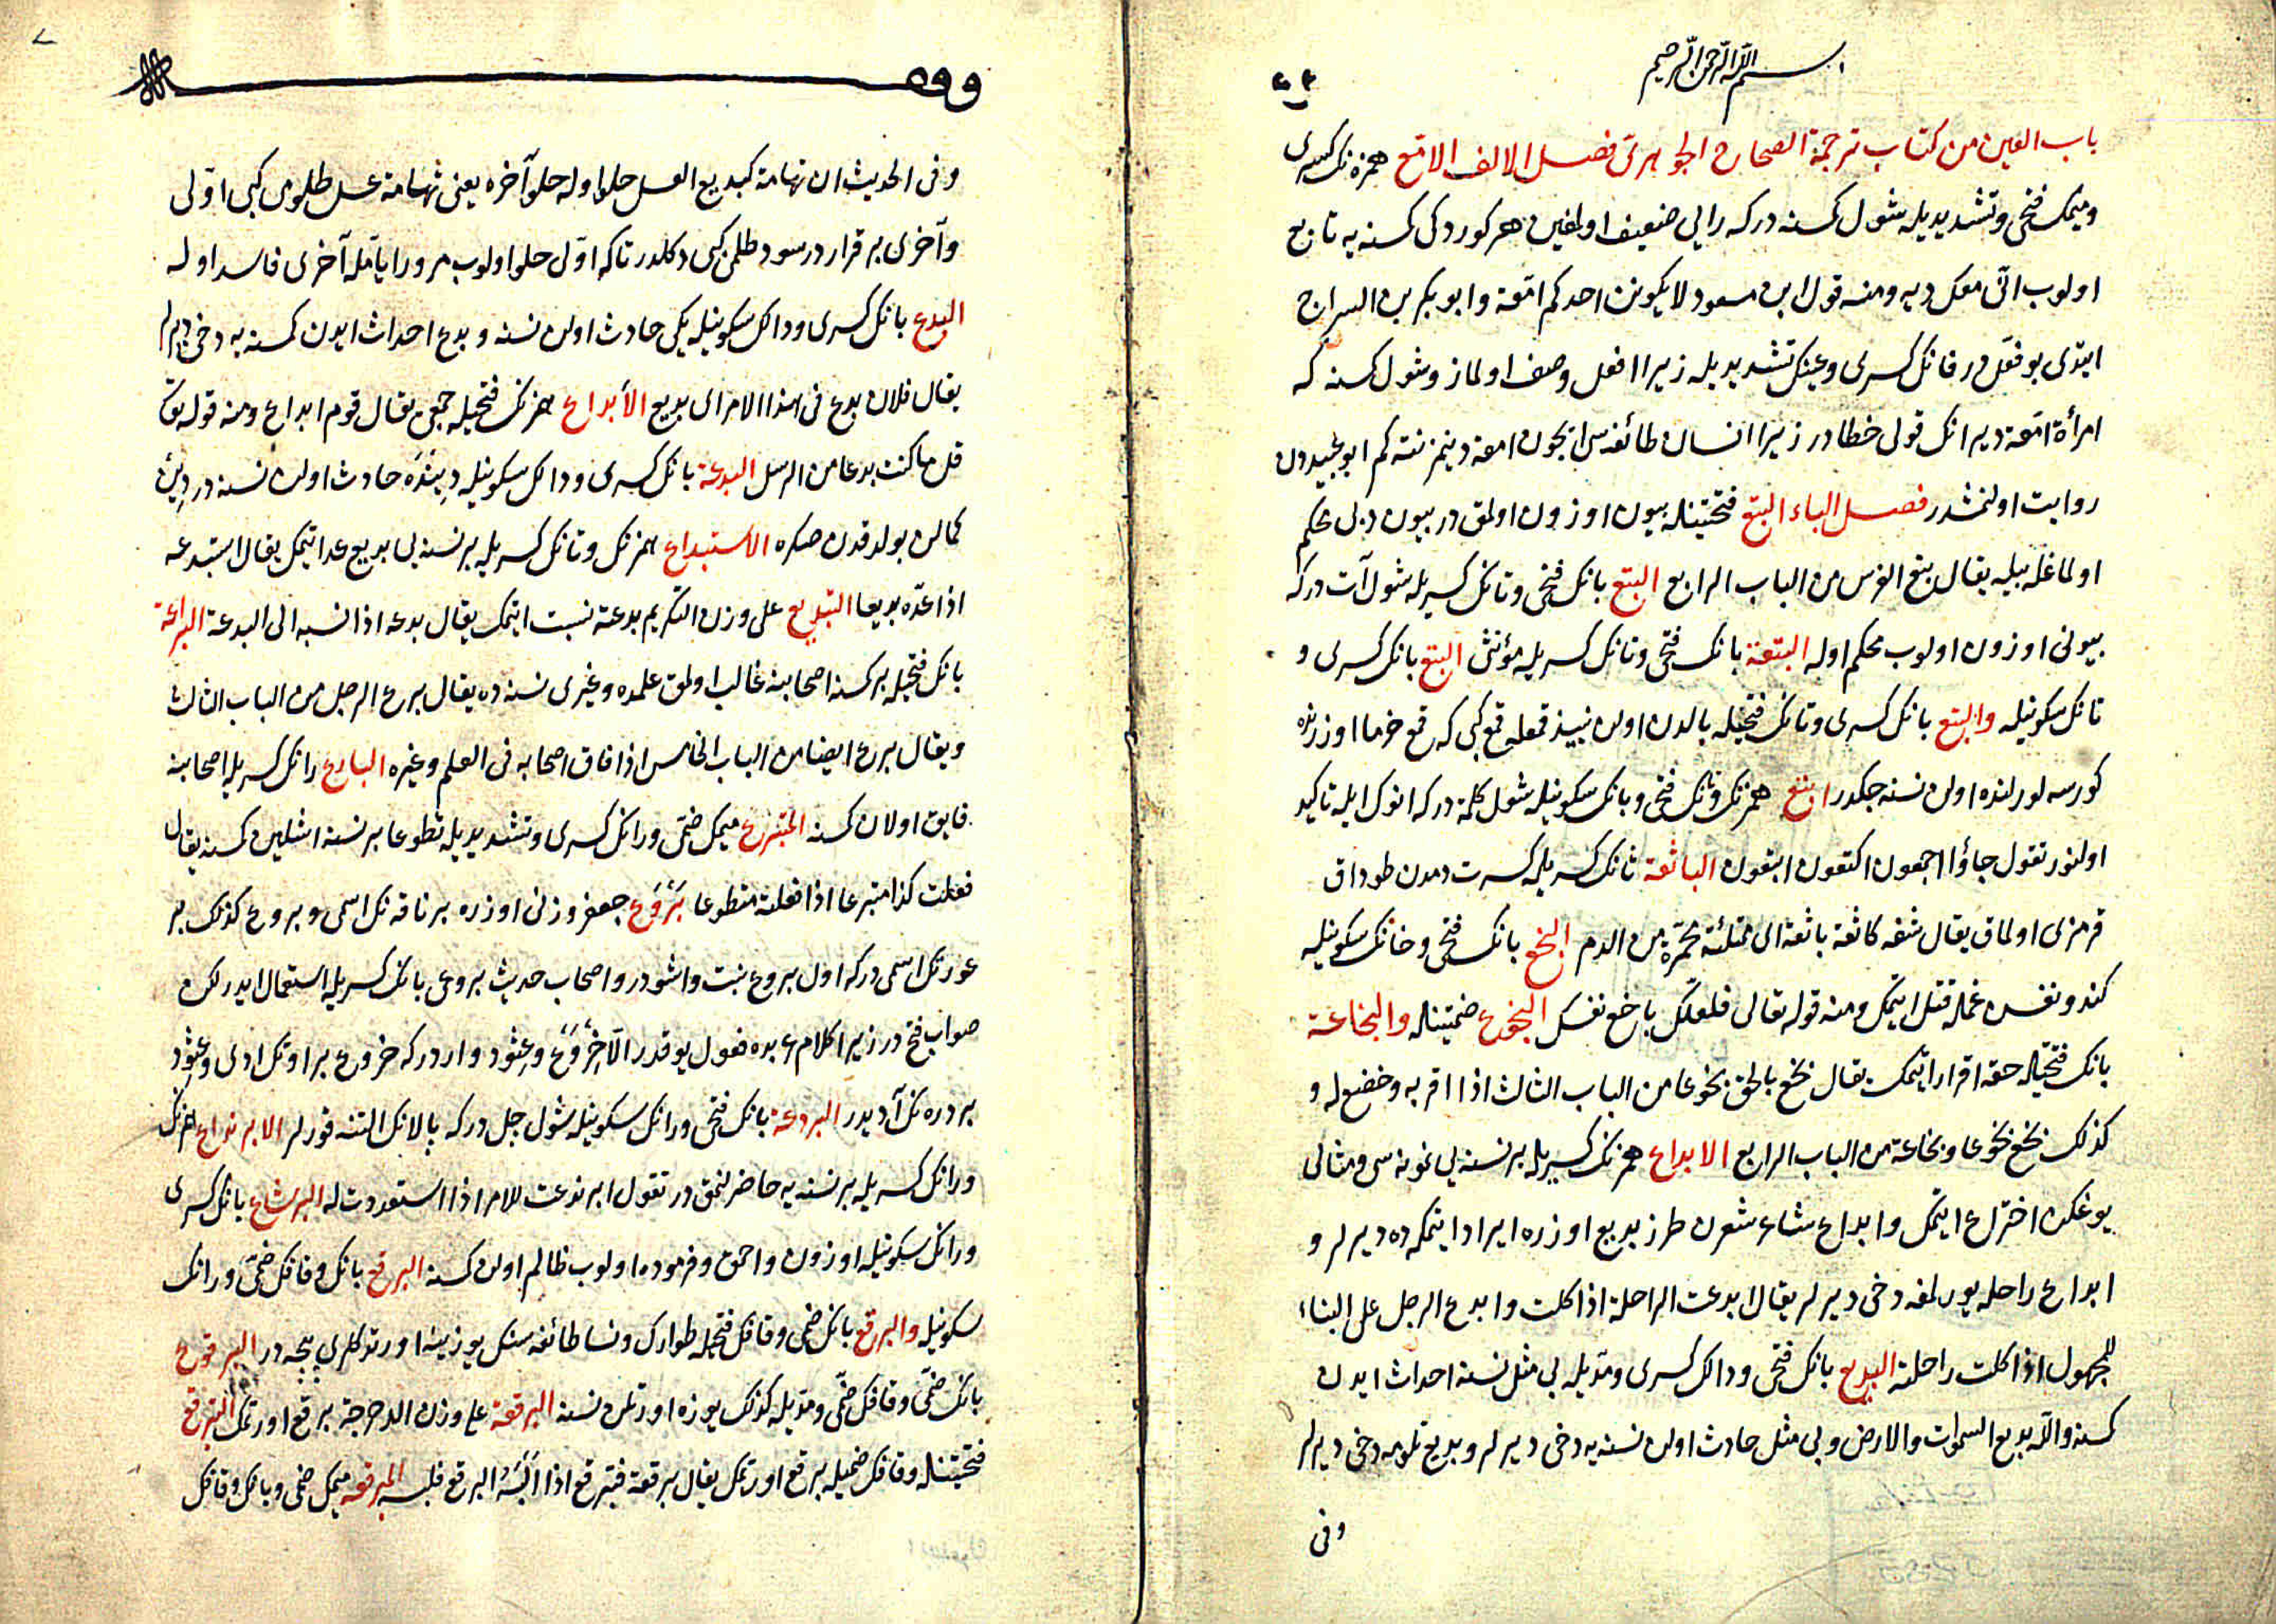 بسم الله الرحمن الرحيم
باب العين من كتاب ترجمة الصحاح الجوهرى فصل الالف الامّع همزه نك كسرى
وميمك فتحى وتشديديله شول كسنه دركه رايى ضعيف اولمغين هر كوردكى كسنه يه تابع
اولوب انى معك ديه ومنه قول ابن مسعود لا يكونن احدكم امّعة وابو بكر بن السراج
ايتدى بو فعّل در فانك كسرى وعينك تشديديله زيرا افعل وصف اولماز وشول كسنه كه
امرأة امّعة دير انك قولى خطادر زيرا انسان طائفه سى ايچون امعة دينمز نته كم ابو عبيددن
روايت اولنمشدر فصل الباء البتع فتحتينله بيون اوزون اولمق در بيون دبى محكم
اولماغله بيله يقال بتع الفرس من الباب الرابع البتع بانك فتحى وتانك كسريله شول آت دركه
بيونى اوزون اولوب محكم اوله البتعة بانك فتحى وتانك كسريله مؤنثى البتع بانك كسرى و
تانك سكونيله والبتع بانك كسرى وتانك فتحيله بالدن اولن نبيذ قمعله قمع كبى كه قمع خرما اوزرنده
كورسه لورلنده اولن نسنه جكدر ابتع همزنك وتانك فتحى وبانك سكونيله شول كلمه دركه انوك ايله تاكيد
اولنور تقول جاؤا اجمعون اكتعون ابتعون الباثعة ثانك كسريله كسرت دمدن طوداق
قرمزى اولماق يقال شفة كاثعة باثعة اى ممتلئة محمّرة من الدم البخع بانك فتحى وخانك سكونيله
كندو نفسن غمله قتل ايتمك ومنه قوله تعالى فلعلّك باخع نفسك البخوع ضمتينله والبخاعة
بانك فتحيله حقه اقرار ايتمك يقال بخع بالحق بخوعا من الباب الثالث اذا اقر به وخضع له و
كذلك بخع بخوعا وبخاعة من الباب الرابع الابداع همزنك كسريله بر نسنه يى نمونه سى ومثالى
يوغكن اختراع ايتمك وابداع شاعر شعرن طرز بديع اوزره ايراد ايتمكه ده ديرلر و
ابداع راحله يورلمغه دخى ديرلر يقال ابدعت الراحلة اذا كلت وابدع الرجل على البناء
للمجهول اذا كلت راحلته البديع بانك فتحى ودالك كسرى ومدّيله بى مثل نسنه احداث ايدن
كسنه والله بديع السموات والارض وبى مثل حادث اولن نسنه يه دخى ديرلر وبديع تلومه دخى ديرلر
وفى
وقف
وفى الحديث ان تهامة كبديع العسل حلو اوله حلو آخره يعنى تهامة عسل طلومى كبى اوّلى
وآخرى بر قرار در سود طلمى كبى دكلدر تاكه اوّل حلو اولوب مرور ايّامله آخرى فاسد اوله
البدع بانك كسرى ودالك سكونيله يكى حادث اولن نسنه وبدع احداث ايدن كسنه يه دخى ديرلر
يقال فلان بدع فى هذا الامر اى بديع الأبداع همزنك فتحيله جمعى يقال قوم ابداع ومنه قوله تع
قل ما كنت بدعا من الرسل البدعة بانك كسرى ودالك سكونيله دينده حادث اولن نسنه در دين
كمالن بولدقدن صكره الاستبداع همزنك وتانك كسريله بر نسنه يى بديع عد ايتمك يقال استبدعه
اذا عدّه بديعا التبديع على وزن التكريم بدعته نسبت ايتمك يقال بدعه اذا نسبه الى البدعة البراعة
بانك فتحيله بر كسنه اصحابينه غالب اولمق علمده وغيرى نسنه ده يقال برع الرجل من الباب الثالث
ويقال برع ايضا من الباب الخامس اذا فاق اصحابه فى العلم وغيره البارع رانك كسريله اصحابينه
فايق اولان كسنه المتبرع ميمك ضمّى ورانك كسرى وتشديديله تطوعا بر نسنه اشلين كسنه يقال
فعلت كذا متبرعا اذا فعلته متطوعا بَرْوَع جعفر وزنى اوزره بر ناقه نك اسمى وبروع كذلك بر
عورتك اسمى دركه اول بروع بنت واشقدر واصحاب حديث بروعى بانك كسريله استعمال ايدر لكن
صواب فتحدر زيرا كلام عربده فعول يوقدر الّا خِرْوَع وعِتْود وارد دركه خروع بر اوتك ادى وعتود
بر دره نك آديدر البردعة بانك فتحى ورانك سكونيله شول جل دركه پالانك التنه قورلر الابرنداع همزنك
ورانك كسريله بر نسنه يه حاضرلنمق در تقول ابرنذعت للامر اذا استعددت له البرشاع بانك كسرى
ورانك سكونيله اوزون واحمق وفرموده اولوب ظالم اولن كسنه البرقع بانك وقافك ضمّى ورانك
سكونيله والبرقع بانك ضمى وقافك فتحيله طوارك ونسا طائفه سنك يوزينه اورتدكلرى پچه در البرقوع
بانك ضمّى وقافك ضمّى ومدّيله كذلك يوزه اورتلن نسنه البرقعة على وزن الدحرجة برقع اورتمك التبرقع
فتحتينله وقافك ضميله برقع اورتمك يقال برقعه فتبرقع اذا البسه البرقع فلبسه المبرقعة ميمك ضمى وبانك وقافك